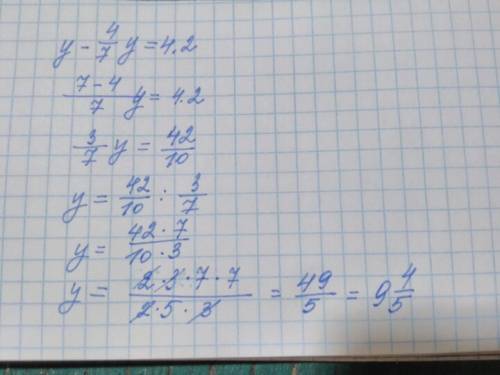 y - 4/7 y = 4.2
7-4/7 y = 4.2
3/7 y = 42/10
y = 42/10 : 3/7
y = 42·7/10·3
y = 2·3·7·7/2·5·3 = 49/5 = 9 4/5